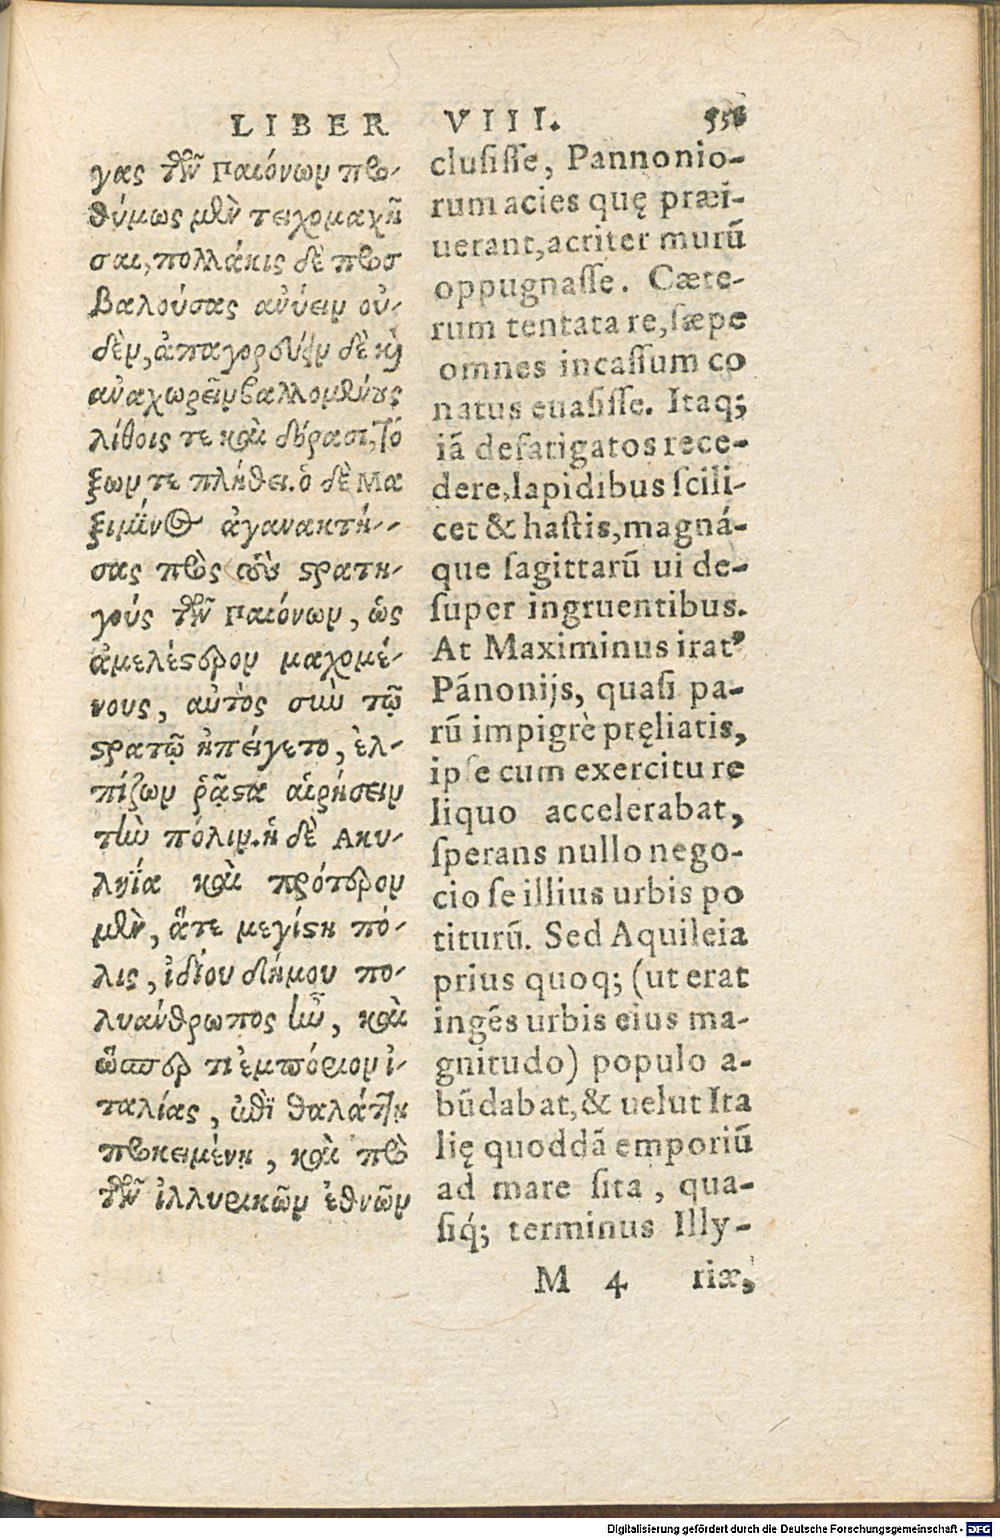 LIBER VIII. 556
γας τῶν Παιόνων προ-
θύμως μὲν τειχομαχῆ
σαι, πολλάκις δὲ προσ
βαλούσας ἀνύειν οὐ-
δὲν, ἀπαγορεύειν δὲ κὶ
ἀναχωρεῖν βαλλομένους
λίθοις τε καὶ δόρασι, τό
ξων τε πλήθει. ὁ δὲ Μα
ξιμῖνος ἀγανακτή-
σας πρὸς τοὺς στρατη-
γούς τῶν Παιόνων, ὡς
ἀμελέστερον μαχομέ-
νους, αὐτὸς σὺν τῷ
στρατῷ ἠπείγετο, ἐλ-
πίζων ῥᾷστα αἱρήσειν
τὴν πόλιν. ἡ δὲ Ακυ-
ληΐα καὶ πρότερον
μὲν, ἅτε μεγίστη πό-
λις, ἰδίου δήμου πο-
λυάνθρωπος ἦν, καὶ
ὥσπερ τι ἐμπόριον ἰ-
ταλίας, ἐπὶ θαλάττῃ
προκειμένη, καὶ πρὸ
τῶν ἰλλυρικῶν ἐθνῶν
clusisse, Pannonio-
rum acies quę præi-
uerant, acriter murũ
oppugnasse. Cæte-
rum tentata re, sæpe
omnes incassum co
natus euasisse. Itaq;
iã defatigatos rece-
dere, lapidibus scili-
cet & hastis, magná-
que sagittarũ ui de-
super ingruentibus.
At Maximinus irat⁹
Pãnonijs, quasi pa-
rũ impigrè pręliatis,
ipse cum exercitu re
liquo accelerabat,
sperans nullo nego-
cio se illius urbis po
titurũ. Sed Aquileia
prius quoq; (ut erat
ingẽs urbis eius ma-
gnitudo) populo a-
bũdabat, & uelut Ita
lię quoddã emporiũ
ad mare sita, qua-
siq́; terminus Illy-
M 4 riæ,
Digitalisierung gefördert durch die Deutsche Forschungsgemeinschaft - DFG